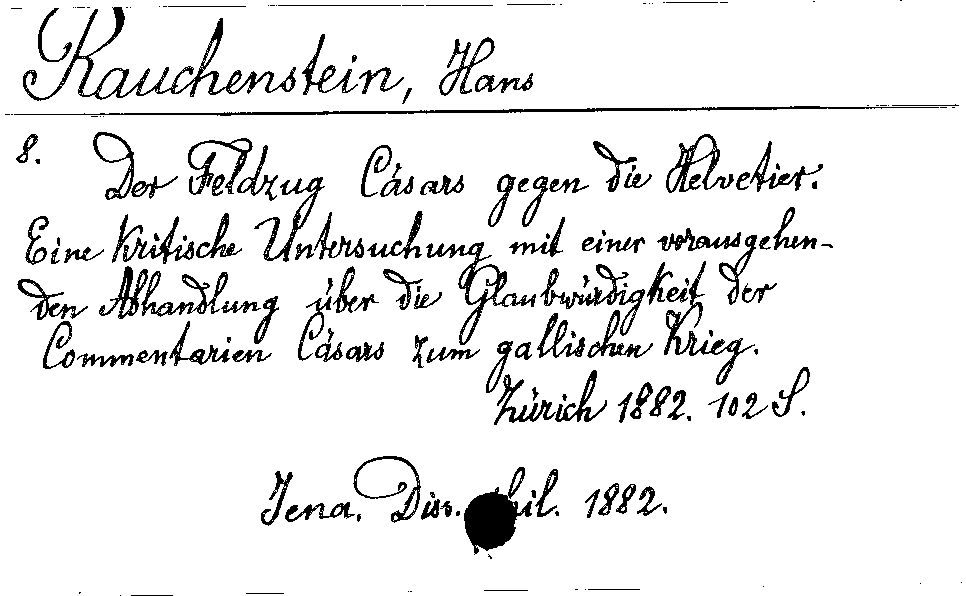 Rauchenstein, Hans
8. Der Feldzug Cäsars gegen die Helvetier.
Eine kritische Untersuchung mit einer vorausgehen-
den Abhandlung über die Glaubwürdigkeit der
Commentarien Cäsars zum gallischen Krieg.
Zürich 1882. 102 S.
Jena. Diss. phil. 1882.